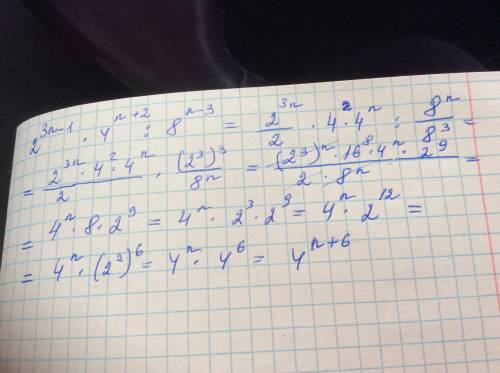 2^{3n-1} · 4^{n+2} : 8^{n-3} = \frac{2^{3n}}{2} · 4^2 · 4^n : \frac{8^n}{8^3} =
= \frac{2^{3n} · 4^2 · 4^n}{2} · \frac{(2^3)^3}{8^n} = \frac{(2^3)^n · 16^8 · 4^n · 2^9}{2 · 8^n} =
= 4^n · 8 · 2^9 = 4^n · 2^3 · 2^9 = 4^n · 2^{12} =
= 4^n · (2^2)^6 = 4^n · 4^6 = 4^{n+6}